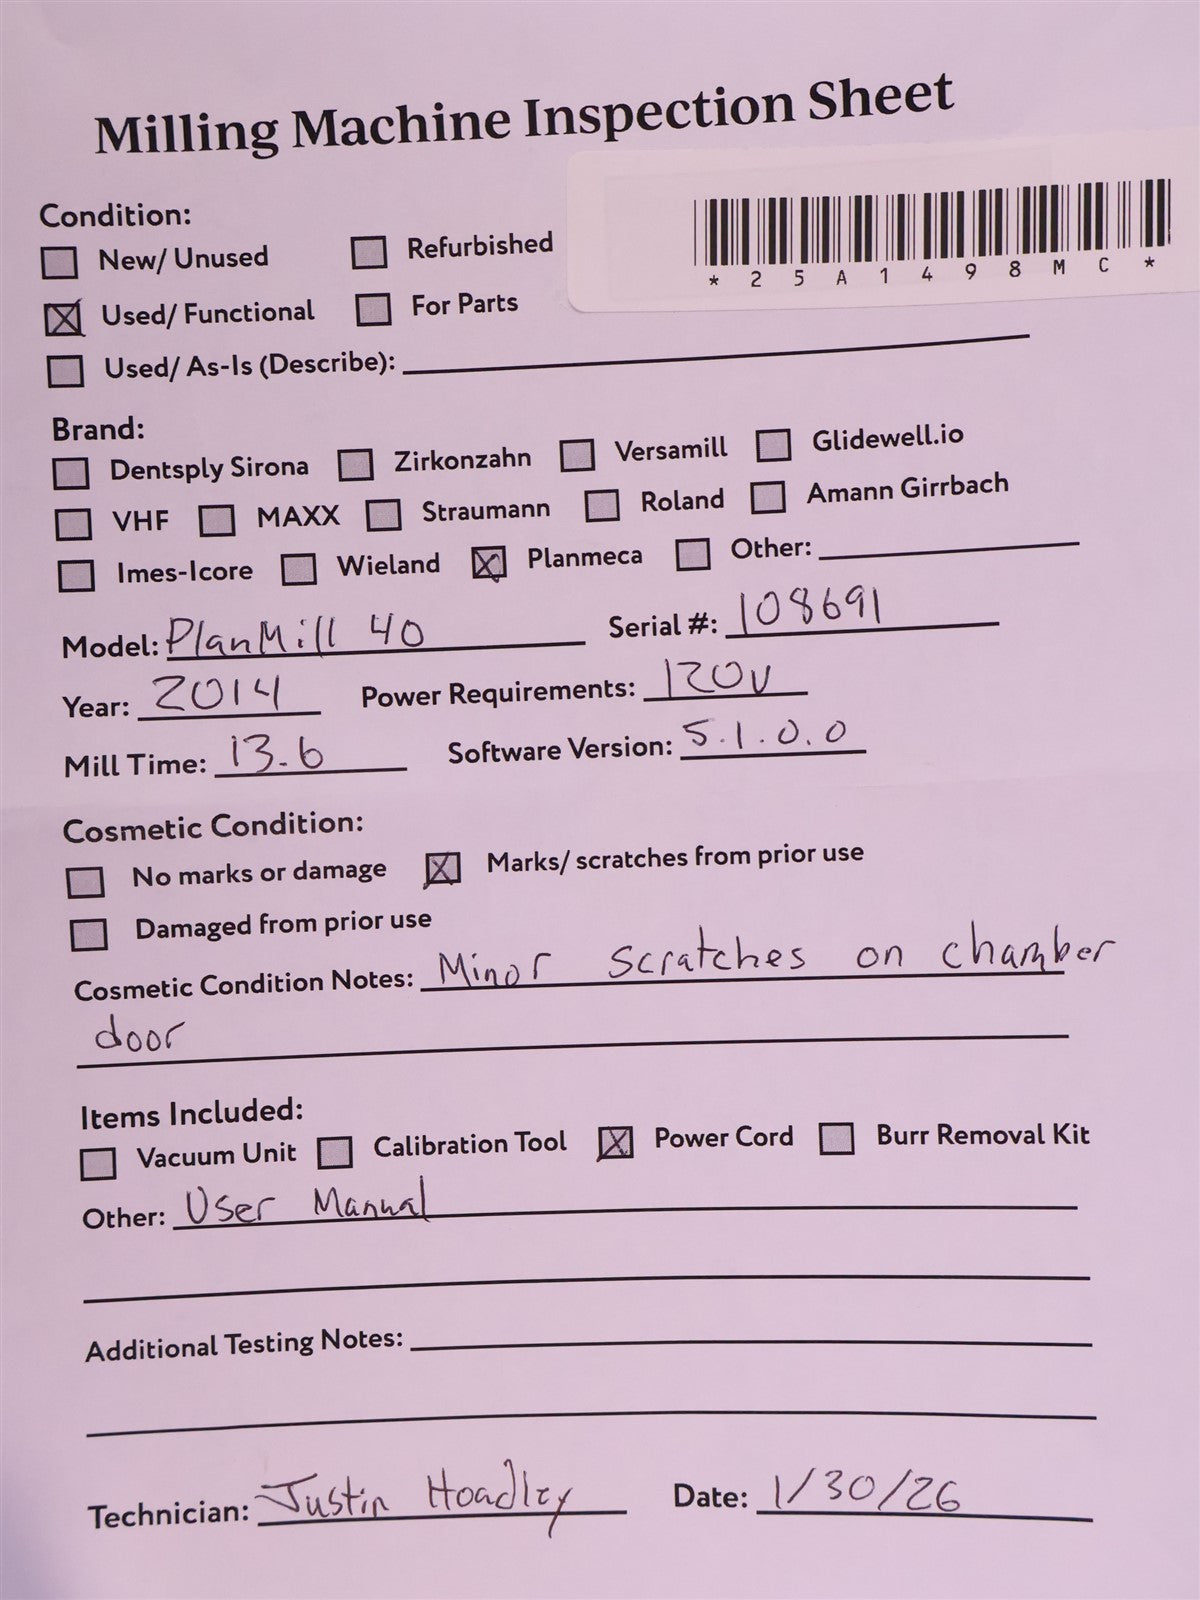 Milling Machine Inspection Sheet
Condition:
New/ Unused Refurbished
*25A1498MC*
Used/ Functional For Parts
Used/ As-Is (Describe):
Brand:
Dentsply Sirona Zirkonzahn Versamill Glidewell.io
VHF MAXX Straumann Roland Amann Girrbach
Imes-Icore Wieland Planmeca Other:
Model: PlanMill 40 Serial #: 108691
Year: 2014 Power Requirements: 120V
Mill Time: 13.6 Software Version: 5.1.0.0
Cosmetic Condition:
No marks or damage Marks/ scratches from prior use
Damaged from prior use
Cosmetic Condition Notes: Minor scratches on chamber
door
Items Included:
Vacuum Unit Calibration Tool Power Cord Burr Removal Kit
Other: User Manual
Additional Testing Notes:
Technician: Justin Hoadley Date: 1/30/26